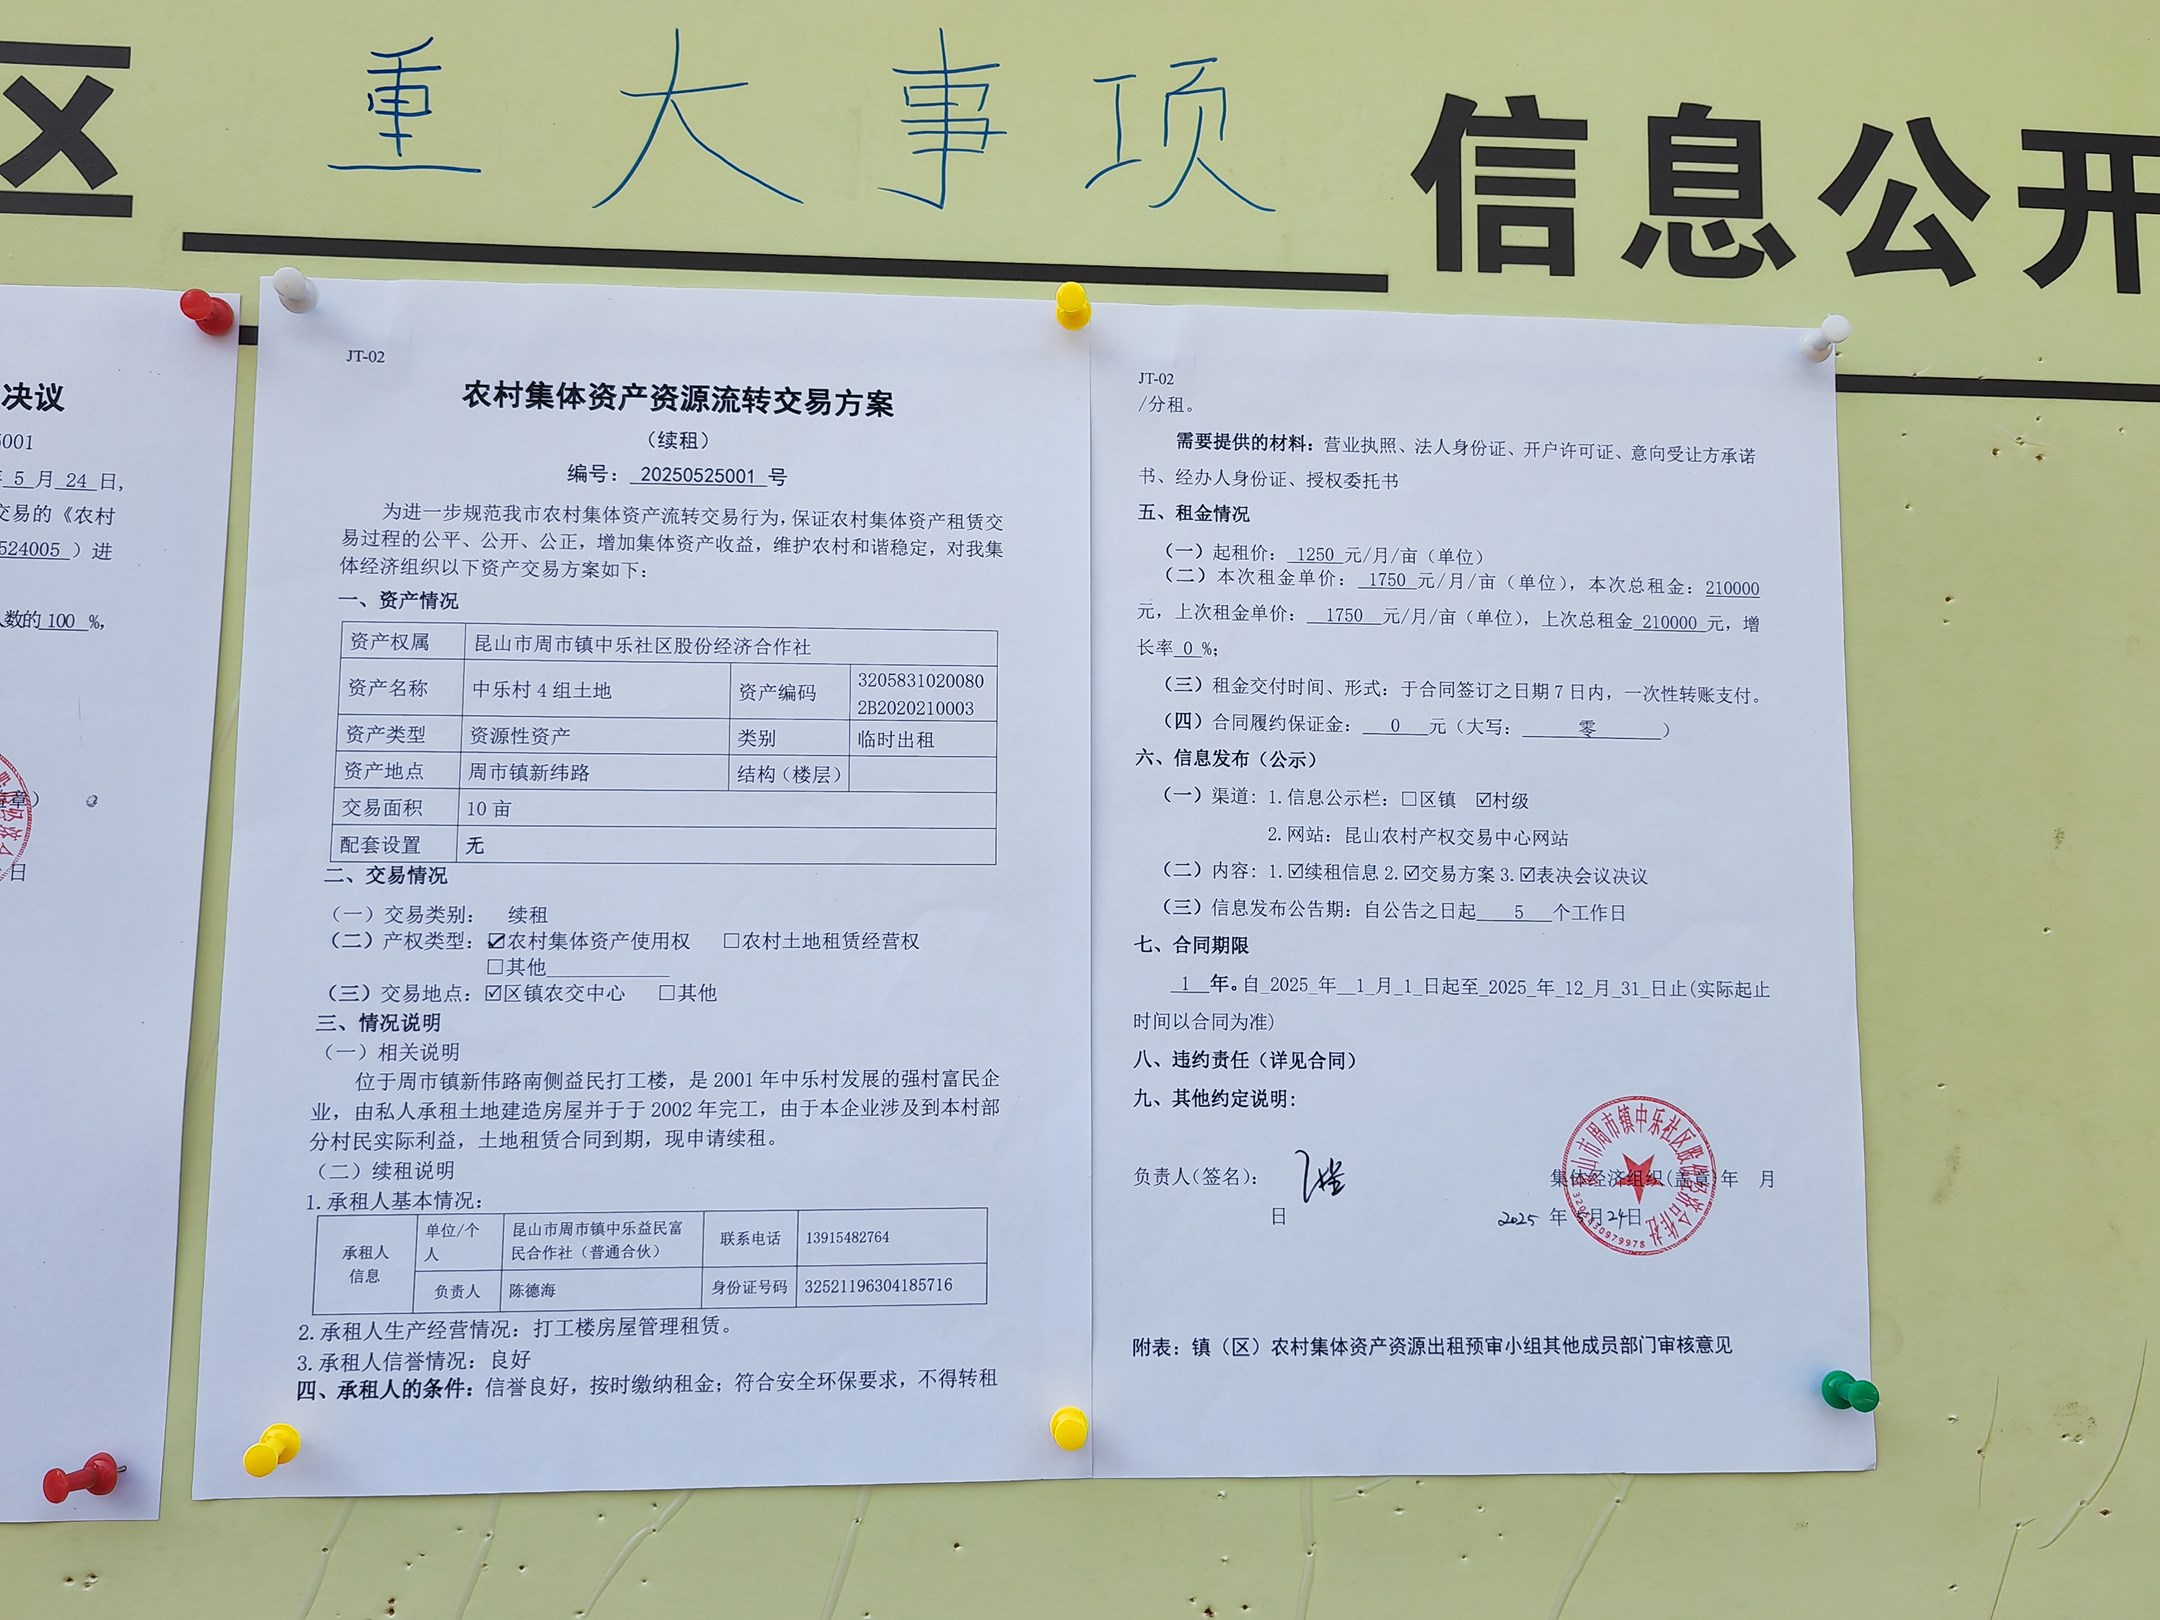 区 重大事项 信息公开
决议
5001
5月24日,
交易的《农村
524005）进
人数的100%,
章）
日
JT-02
农村集体资产资源流转交易方案
（续租）
编号： 20250525001 号
为进一步规范我市农村集体资产流转交易行为,保证农村集体资产租赁交
易过程的公平、公开、公正，增加集体资产收益，维护农村和谐稳定，对我集
体经济组织以下资产交易方案如下：
一、资产情况
资产权属 昆山市周市镇中乐社区股份经济合作社
资产名称 中乐村4组土地 资产编码 3205831020080
2B2020210003
资产类型 资源性资产 类别 临时出租
资产地点 周市镇新纬路 结构（楼层）
交易面积 10亩
配套设置 无
二、交易情况
（一）交易类别： 续租
（二）产权类型：☑农村集体资产使用权 □农村土地租赁经营权
□其他____________
（三）交易地点：☑区镇农交中心 □其他
三、情况说明
（一）相关说明
位于周市镇新伟路南侧益民打工楼，是2001年中乐村发展的强村富民企
业，由私人承租土地建造房屋并于于2002年完工，由于本企业涉及到本村部
分村民实际利益，土地租赁合同到期，现申请续租。
（二）续租说明
1.承租人基本情况：
承租人
信息 单位/个
人 昆山市周市镇中乐益民富
民合作社（普通合伙） 联系电话 13915482764
负责人 陈德海 身份证号码 32521196304185716
2.承租人生产经营情况：打工楼房屋管理租赁。
3.承租人信誉情况：良好
四、承租人的条件：信誉良好，按时缴纳租金；符合安全环保要求，不得转租
JT-02
/分租。
需要提供的材料：营业执照、法人身份证、开户许可证、意向受让方承诺
书、经办人身份证、授权委托书
五、租金情况
（一）起租价： 1250 元/月/亩（单位）
（二）本次租金单价： 1750 元/月/亩（单位），本次总租金：210000
元，上次租金单价： 1750 元/月/亩（单位），上次总租金 210000 元，增
长率 0 %；
（三）租金交付时间、形式：于合同签订之日期7日内，一次性转账支付。
（四）合同履约保证金： 0 元（大写： 零 ）
六、信息发布（公示）
（一）渠道：1.信息公示栏：□区镇 ☑村级
2.网站：昆山农村产权交易中心网站
（二）内容：1.☑续租信息2.☑交易方案3.☑表决会议决议
（三）信息发布公告期：自公告之日起 5 个工作日
七、合同期限
1 年。自 2025 年 1 月 1 日起至 2025 年 12 月 31 日止(实际起止
时间以合同为准)
八、违约责任（详见合同）
九、其他约定说明：
昆山市周市镇中乐社区股份经济合作社
负责人(签名)： 集体经济组织(盖章)年 月
日 2025 年 5月24日
3205830979978
附表：镇（区）农村集体资产资源出租预审小组其他成员部门审核意见